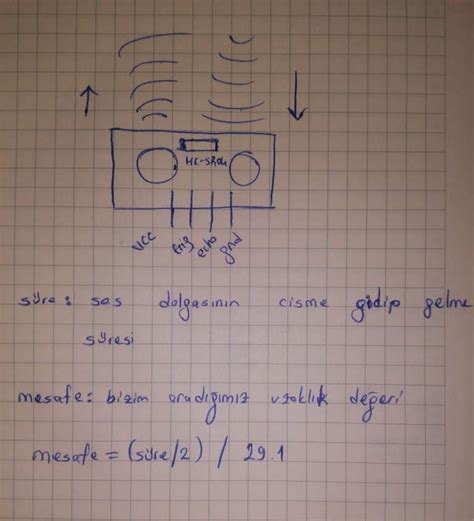 HC-SR04
VCC trig echo gnd
süre: ses dalgasının cisme gidip gelme
süresi
mesafe: bizim aradığımız uzaklık değeri
mesafe = (süre/2) / 29.1